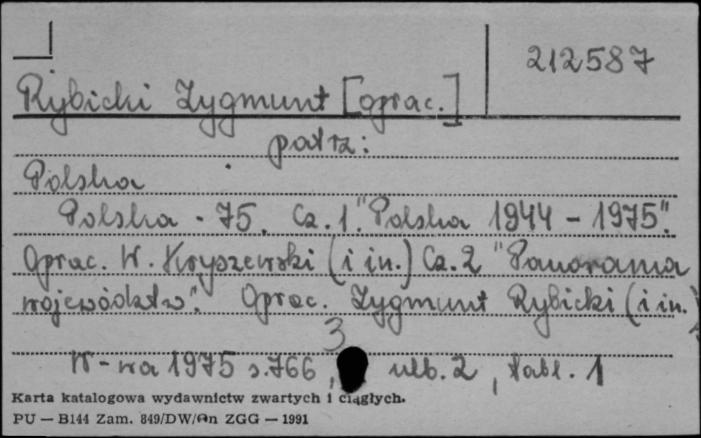 212587
Rybicki Zygmunt [oprac.]
patrz:
Polska
Polska - 75. Cz. 1. "Polska 1944 - 1975".
Oprac. W. Kryszewski (i in.) Cz. 2 "Panorama
województw". Oprac. Zygmunt Rybicki (i in.)
3
W-wa 1975 s. 766, ulb. 2, tabl. 1
Karta katalogowa wydawnictw zwartych i ciągłych.
PU — B144 Zam. 849/DW/ ZGG — 1991